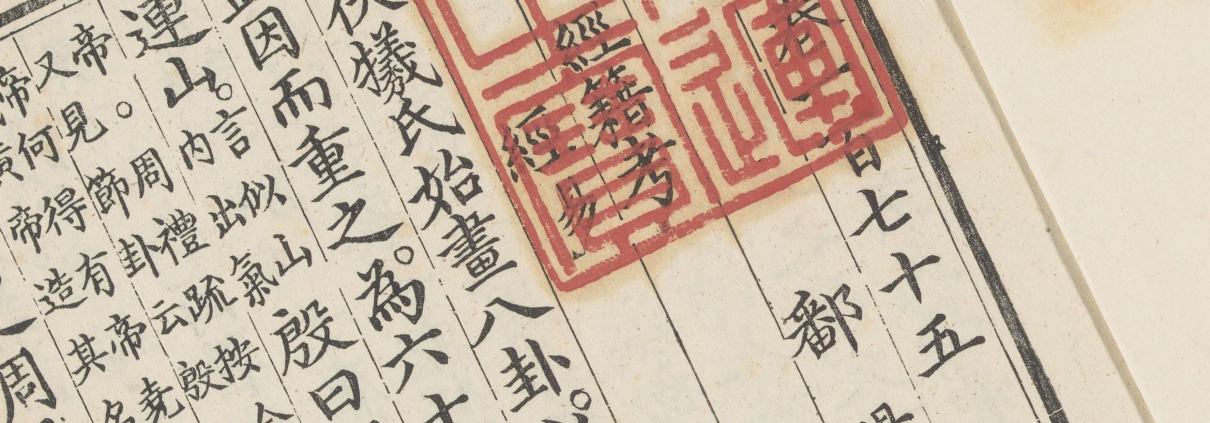 卷一百七十五
鄱
經籍考
經 易
犧氏始畫八卦。
因而重之。為六十
連山。言似山
內出氣殷曰
帝。周禮疏按
又見節卦云殷
帝何得有帝堯
黃帝造其名
周